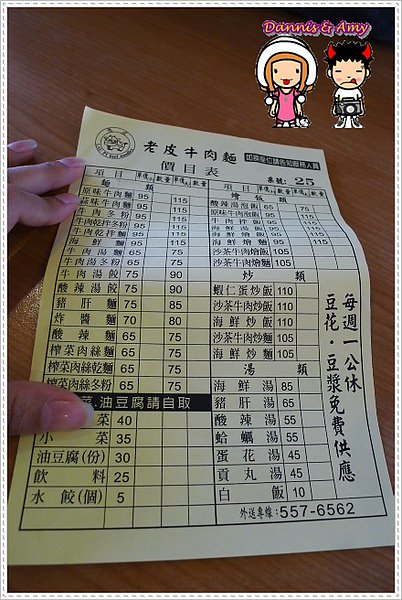 Dannis & Amy
老皮牛肉麵
如換座位請告知服務人員
價目表
桌號: 25
項目 單價小 數量 單價大 數量
麵類
原味牛肉麵 95 115
蒜味牛肉麵 95 115
牛肉冬粉 95 115
牛肉乾拌冬粉 95 115
牛肉乾拌麵 95 115
海鮮麵 95 115
牛肉湯麵 65 75
牛肉湯冬粉 65 75
牛肉湯餃 75 90
酸辣湯餃 75 90
豬肝麵 75 85
炸醬麵 70 80
酸辣麵 65 75
榨菜肉絲麵 65 75
榨菜肉絲乾麵 65 75
榨菜肉絲冬粉 65 75
菜.油豆腐請自取
菜 40
小菜 35
油豆腐(份) 30
飲料 25
水餃(個) 5
項目 單價小 數量 單價大 數量
燴飯類
酸辣湯泡飯 65 75
原味牛肉泡飯 95 115
牛肉拌飯 95 115
海鮮湯飯 95 115
海鮮燴麵 95 115
沙茶牛肉燴飯 105
沙茶牛肉燴麵 105
炒類
蝦仁蛋炒飯 110
沙茶牛肉炒飯 110
海鮮炒飯 110
沙茶牛肉炒麵 105
海鮮炒麵 105
湯類
海鮮湯 85
豬肝湯 65
酸辣湯 55
蛤蠣湯 55
蛋花湯 45
貢丸湯 45
白飯 10
外送專線: 557-6562
每週一公休
豆花.豆漿免費供應